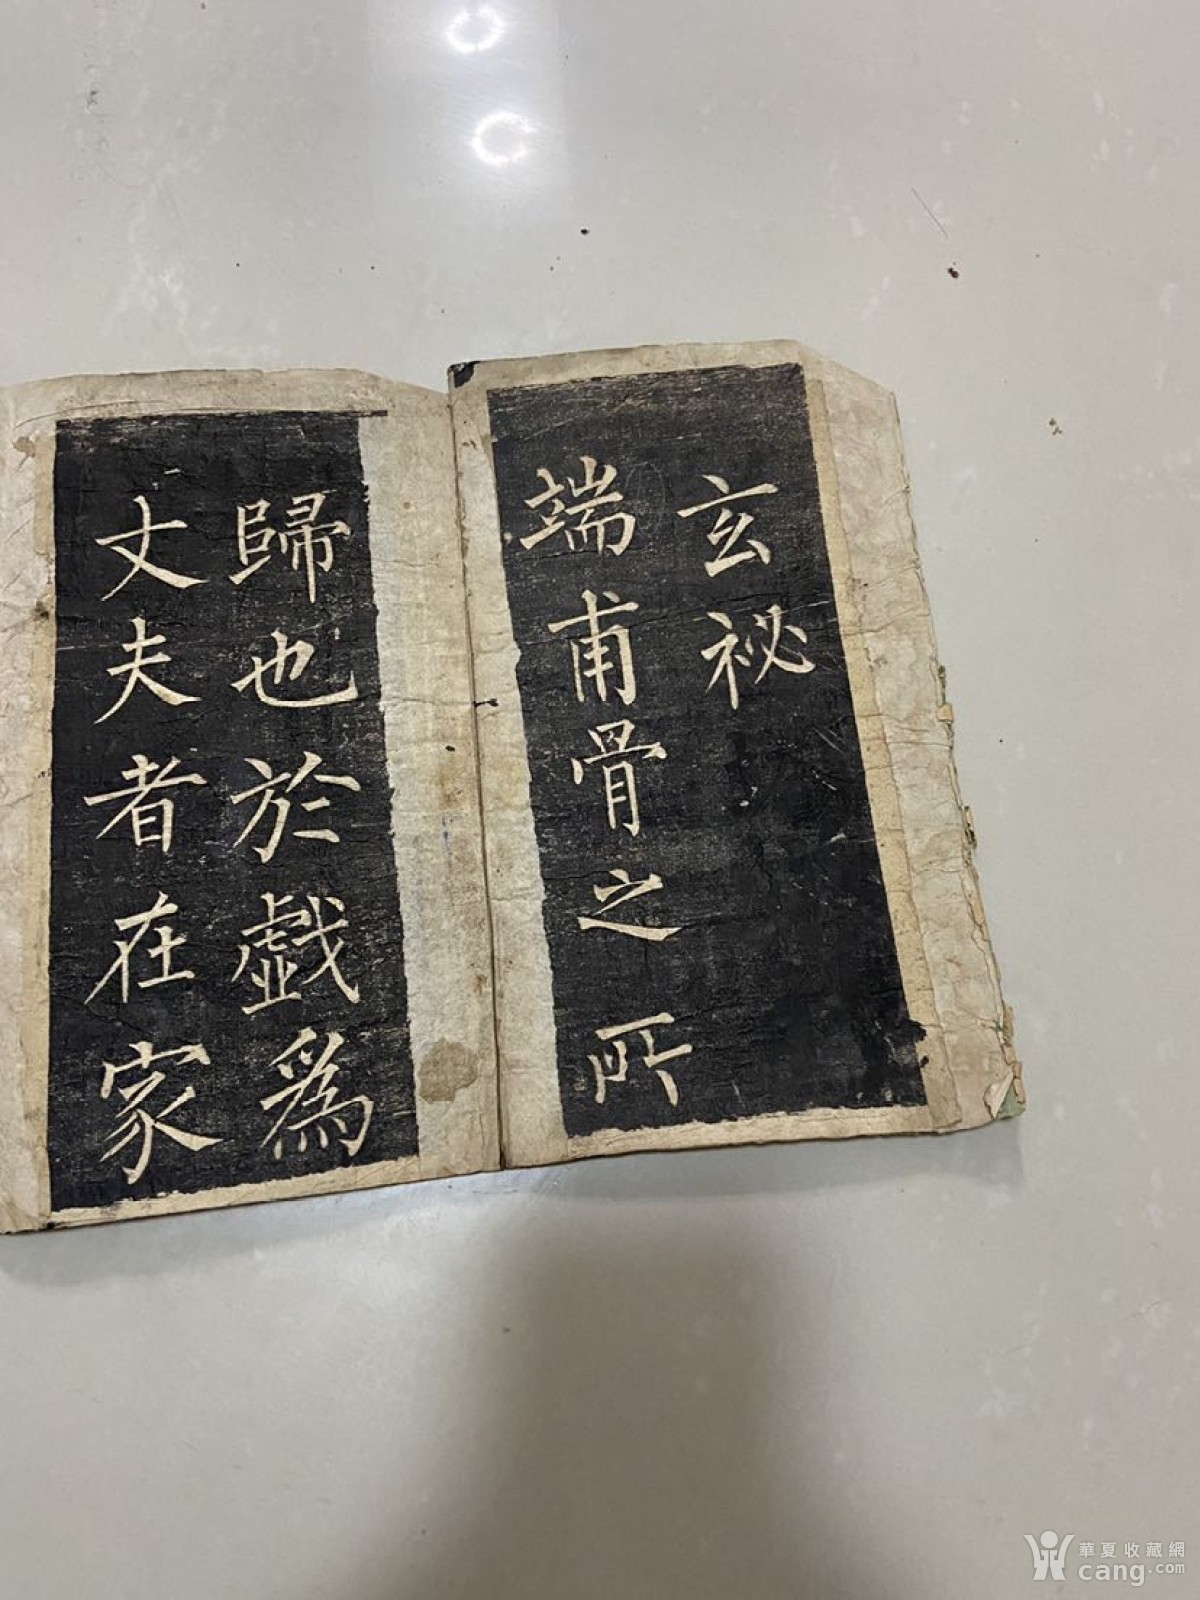 玄祕
端甫骨之所
歸也於戲爲
丈夫者在家
華夏收藏網
cang.com